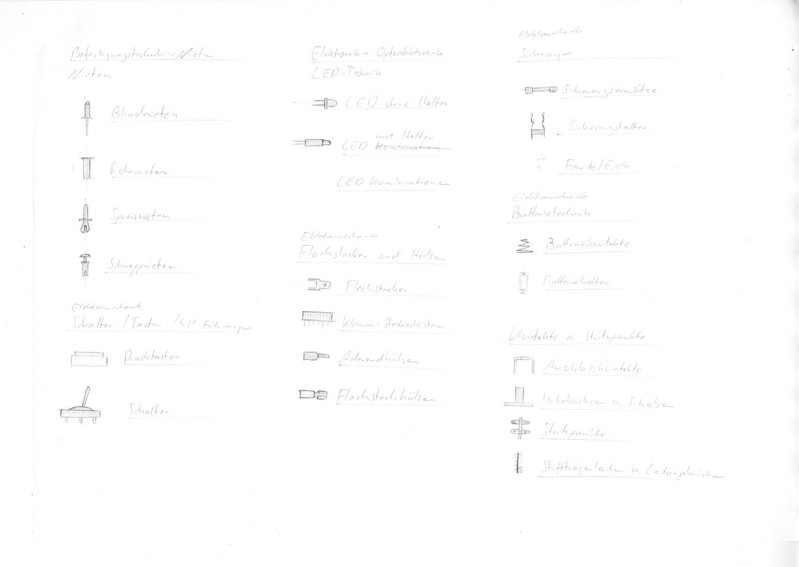 Befestigungstechnik → Nieten
Nieten
Blindnieten
Rohrnieten
Spreiznieten
Schnappnieten
Elektromechanik
Schalter / Taster / LP Führungen
Drucktaster
Schalter
Elektronik → Optoelektronik
LED-Technik
LED ohne Halter
mit Halter
LED
LED Kombinationen
Elektromechanik
Flachstecker und Hülsen
Flachstecker
Steckerleisten
Aderendhülsen
Flachsteckhülsen
Elektromechanik
Sicherungen
Sicherungseinsätze
Sicherungshalter
? Ferrite/EMV
Elektromechanik
Batterietechnik
Batteriekontakte
Batteriehalter
Kontakte u. Stützpunkte
Anschlusskontakte
Isolierbuchsen u. Scheiben
Stützpunkte
Stiftträgerleisten u.